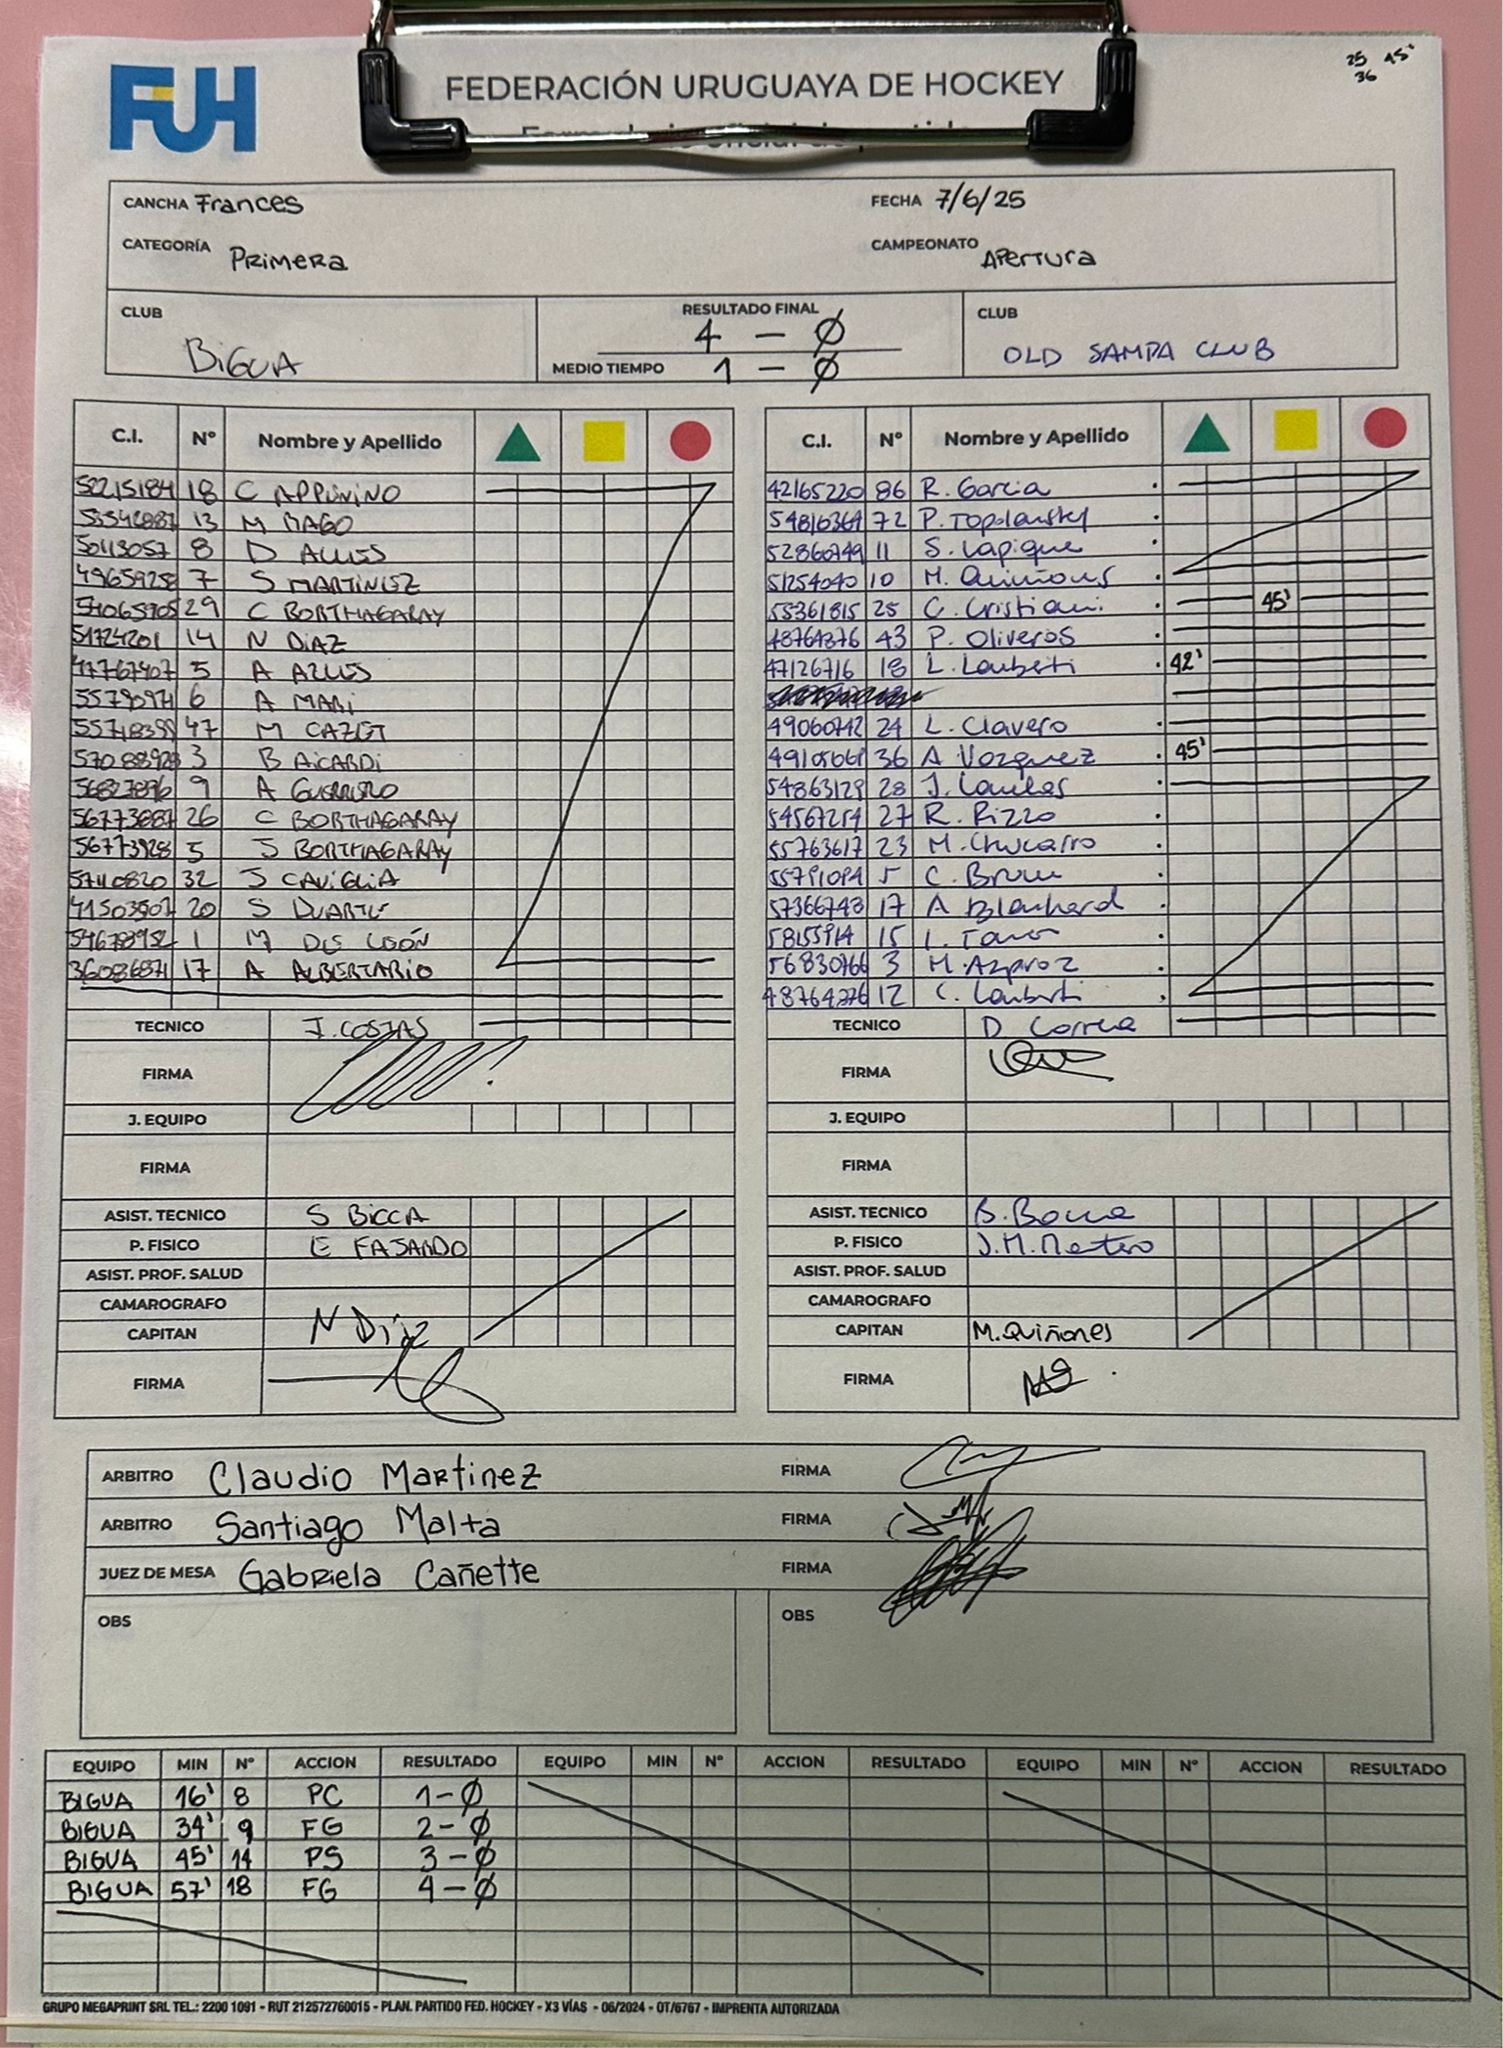 25 45'
36
FUH
FEDERACIÓN URUGUAYA DE HOCKEY
CANCHA Frances FECHA 7/6/25
CATEGORÍA Primera CAMPEONATO Apertura
CLUB RESULTADO FINAL CLUB
BIGUA 4 - Ø OLD SAMPA CLUB
MEDIO TIEMPO 1 - Ø
C.I. Nº Nombre y Apellido C.I. Nº Nombre y Apellido
18 C 42165220 86 R. Garcia
13 M RAGO 72 P. Topolansky
50113057 8 D 52860749 11 S. Lapique
49659258 7 S MARTINEZ 51254040 10 M. Quiñones
29 C BORTHAGARAY 55361815 25 C. Cristiani 45'
51724201 14 N DIAZ 43 P. Oliveros
5 A 47126716 18 L. 42'
6 A MARI
47 M CAZET 49060742 24 L. Clavero
3 B AICARDI 36 A Vazquez 45'
9 A GUERRERO 54863129 28 J.
26 C BORTHAGARAY 27 R. Rizzo
56773928 5 J BORTHAGARAY 55763617 23 M. Chucarro
32 J CAVIGLIA 5 C. Brum
20 S DUARTE 57366743 17 A Blanchard
1 M DE LEÓN 15
17 A ALBERTARIO 3 M.
12 C.
TECNICO J. COSTAS TECNICO D. Correa
FIRMA FIRMA
J. EQUIPO J. EQUIPO
FIRMA FIRMA
ASIST. TECNICO S BICCA ASIST. TECNICO B.
P. FISICO E FAJARDO P. FISICO J.M.
ASIST. PROF. SALUD ASIST. PROF. SALUD
CAMAROGRAFO CAMAROGRAFO
CAPITAN N Díaz CAPITAN M. Quiñones
FIRMA FIRMA
ARBITRO Claudio Martinez FIRMA
ARBITRO Santiago Malta FIRMA
JUEZ DE MESA Gabriela Cañette FIRMA
OBS OBS
EQUIPO MIN Nº ACCION RESULTADO EQUIPO MIN Nº ACCION RESULTADO EQUIPO MIN Nº ACCION RESULTADO
BIGUA 16' 8 PC 1-Ø
BIGUA 34' 9 FG 2-Ø
BIGUA 45' 14 PS 3-Ø
BIGUA 57' 18 FG 4-Ø
GRUPO MEGAPRINT SRL TEL.: 2200 1091 - RUT 212572760015 - PLAN. PARTIDO FED. HOCKEY - X3 VÍAS - 06/2024 - OT/6767 - IMPRENTA AUTORIZADA